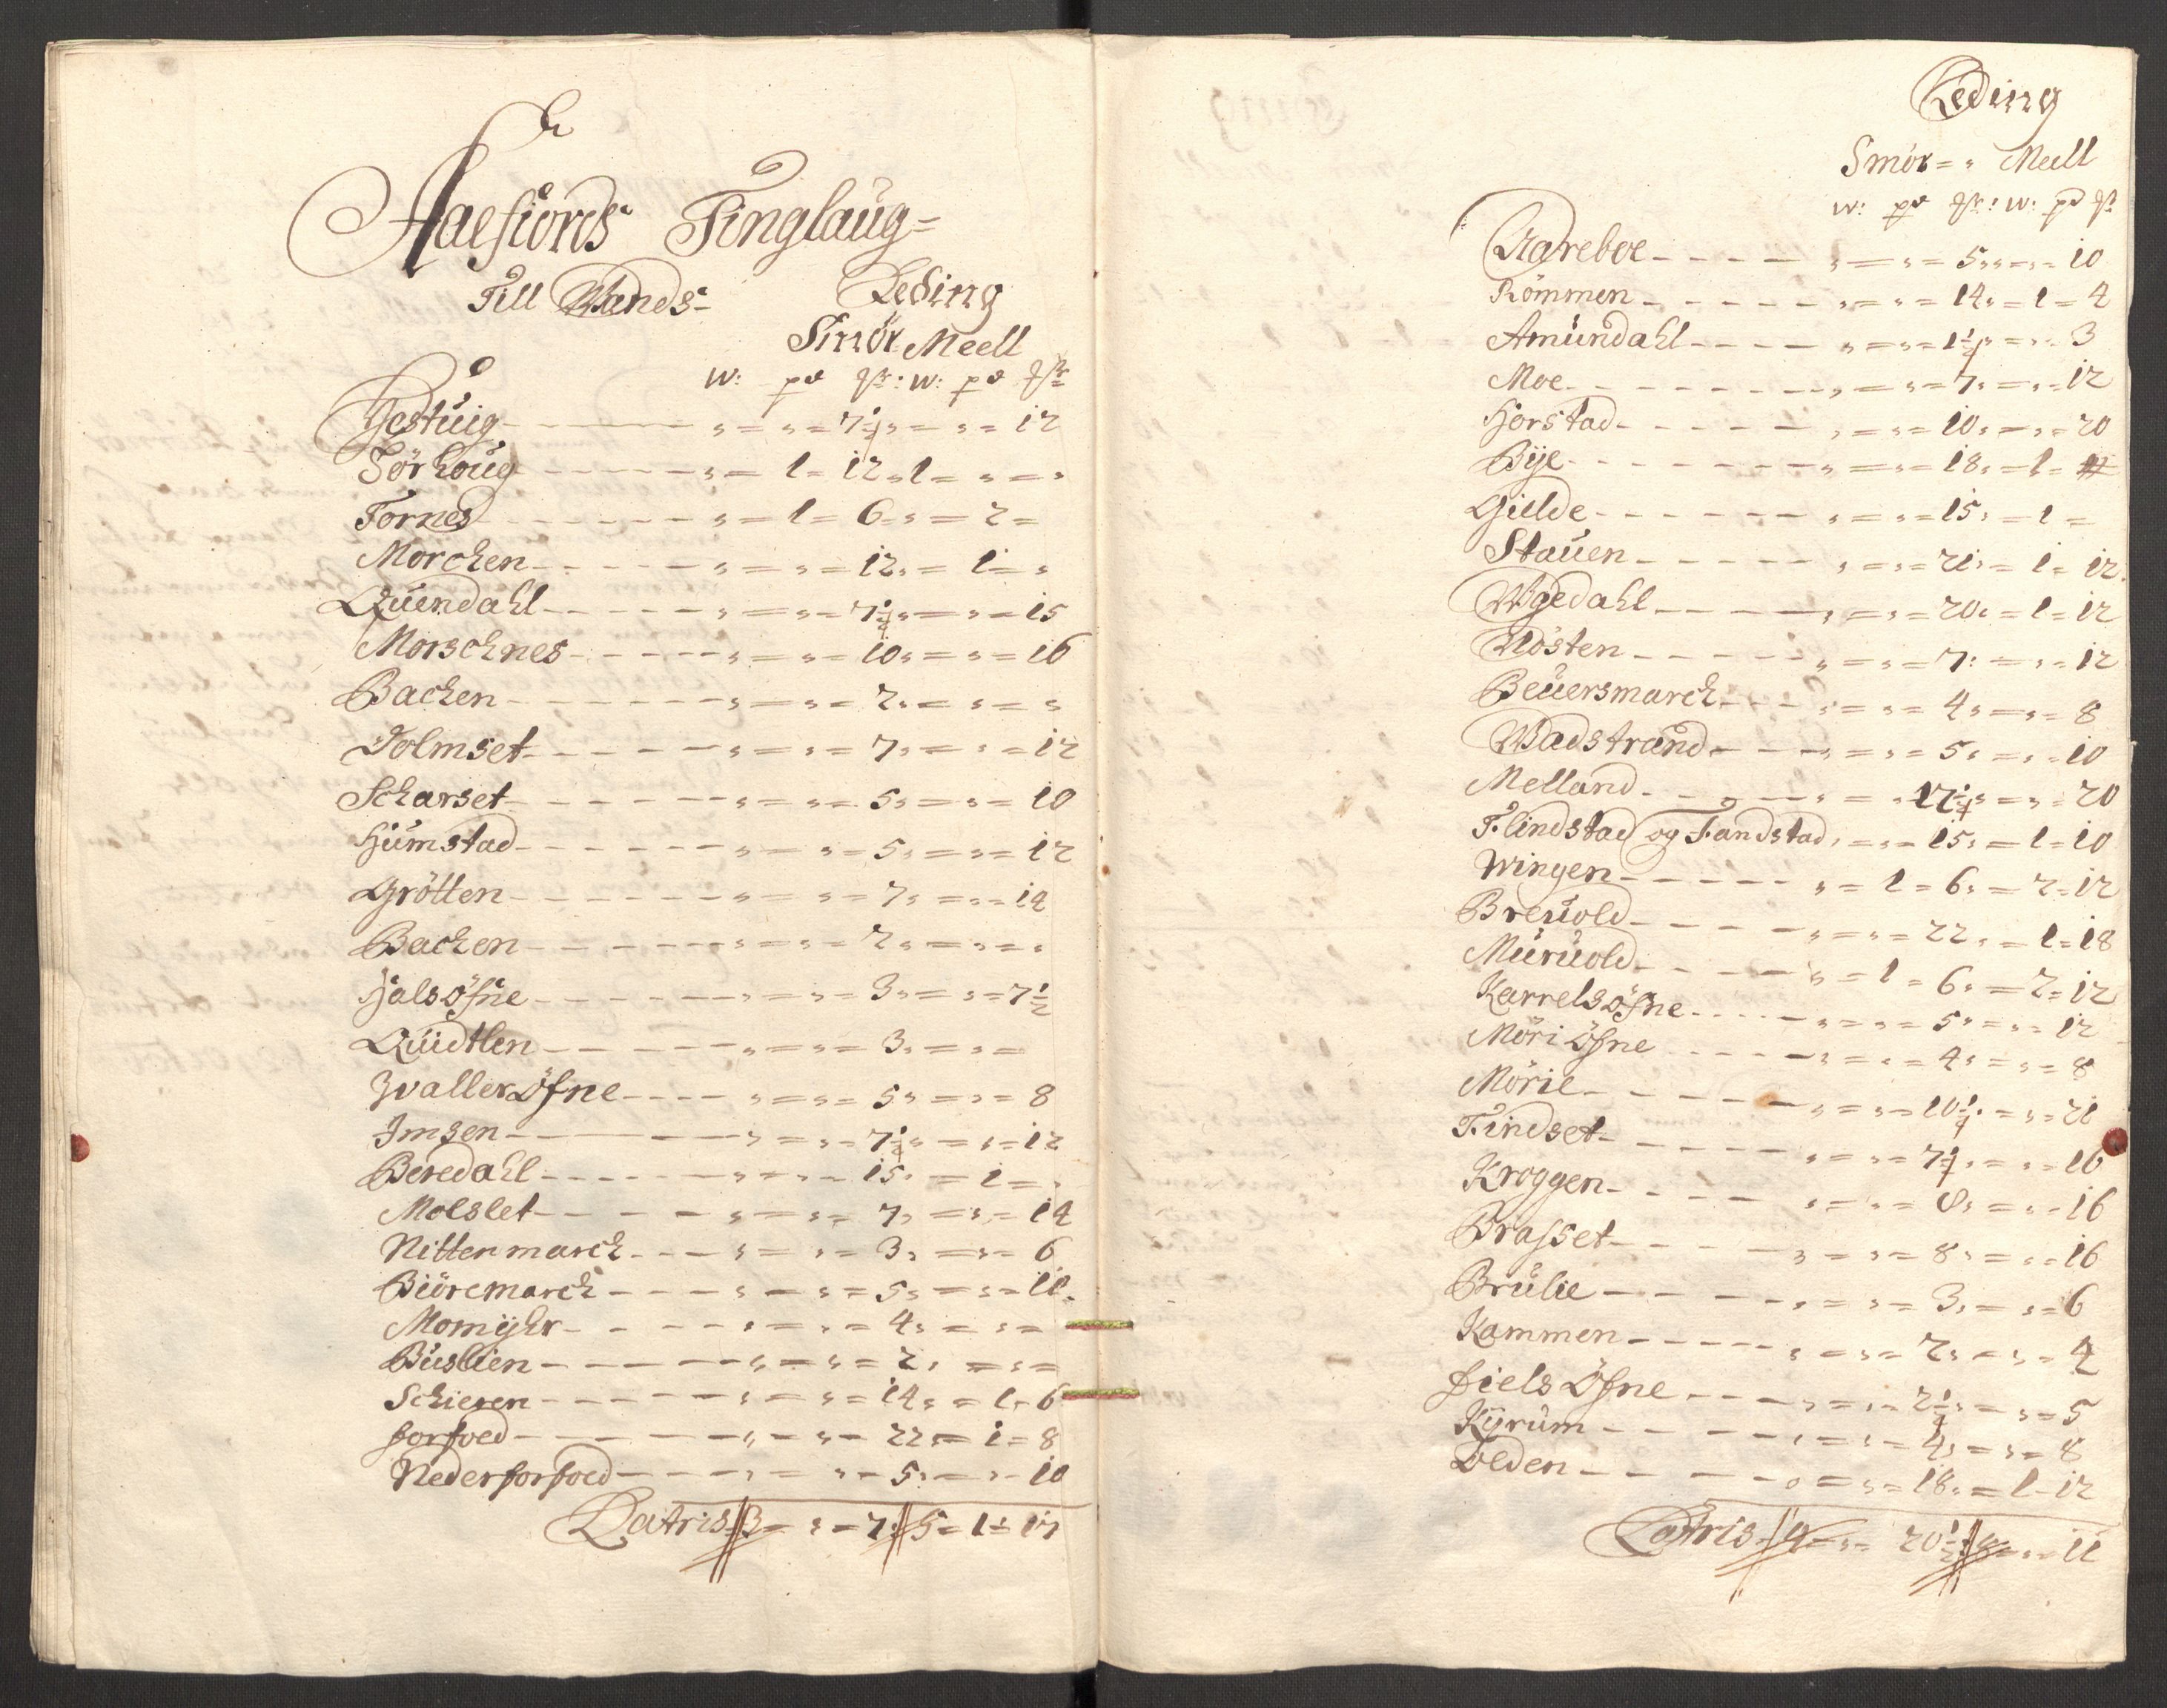 Aaefiords Tinglaug=
Till Wands- Leding
Smör Meell
W: pd : W: pd
Gestuig - - - „ = „ = 7½ „ = „ = 12
Sörhoug - - - „ = 1 = 12 „ 1 = „ = „
Fornes - - - „ = 1 = 6 „ = 2 =
Morchen - - - „ = „ = 12 „ = 1 = „
Quendahl - - - „ = „ = 7½ „ = „ = 15
Morschnes - - - „ = „ = 10 „ = „ = 16
Bachen - - - „ = „ = 2 „ = „ = „
Jolmset - - - „ = „ = 7 „ = „ = 12
Scharset - - - „ = „ = 5 „ = „ = 10
Humstad - - - „ = „ = 5 „ = „ = 12
Grötten - - - „ = „ = 7 „ = „ = 14
Bachen - - - „ = „ = 2 „ = „ = „
Halsöfne - - - „ = „ = 3 „ = „ = 7½
Quidtlen - - - „ = „ = 3 „ = „ =
Zvalleröfne - - - „ = „ = 5 „ = „ = 8
Imsen - - - „ = „ = 7½ „ = „ = 12
Beredahl - - - „ = „ = 15 „ = 1 = „
Molslet - - - „ = „ = 7 „ = „ = 14
Nittenmarch - - - „ = „ = 3 „ = „ = 6
Biöremarch - - - „ = „ = 5 „ = „ = 10
Momyhr - - - „ = „ = 4 „ = „ =
Buslien - - - „ = „ = 2 „ = „ =
Schieren - - - „ = „ = 14 „ = 1 = 6
forfoed - - - „ = „ = 22 „ = 1 = 8
Nederforfoed - - - „ = „ = 5 „ = „ = 10
Latris 3 = „ = 7 „ 5 = 1 = 17
Leding
Smör = „ Meell
W: pd : W: pd
Aareboe - - - „ = „ = 5 „ = „ = 10
Römmen - - - „ = „ = 14 „ = 1 = 4
Amundahl - - - „ = „ = 1½ „ = „ = 3
Moe - - - „ = „ = 7 „ = „ = 12
Horstad - - - „ = „ = 10 „ = „ = 20
Bye - - - „ = „ = 18 „ = 1 =
Gielde - - - „ = „ = 15 „ = 1 =
Stauen - - - „ = „ = 21 „ = 1 = 12
Wigedahl - - - „ = „ = 20 „ = 1 = 12
Aösten - - - „ = „ = 7 „ = „ = 12
Beuersmarch - - - „ = „ = 4 „ = „ = 8
Wadstrand - - - „ = „ = 5 „ = „ = 10
Melland - - - „ = „ 12½ „ = „ = 20
Flindstad og Fandstad „ = „ = 15 „ = 1 = 10
Wingen - - - „ = 1 = 6 „ = 2 = 12
Breuold - - - „ = „ = 22 „ = 1 = 18
Muruold - - - „ = 1 = 6 „ = 2 = 12
Karrelsöfne - - - „ = „ = 5 „ = „ = 12
Möriöfne - - - „ = „ = 4 „ = „ = 8
Mörie - - - „ = „ = 10½ „ = „ = 21
Findset - - - „ = „ = 7½ „ = „ = 16
Kroggen - - - „ = „ = 8 „ = „ = 16
Brasset - - - „ = „ = 8 „ = „ = 16
Brulie - - - „ = „ = 3 „ = „ = 6
Kammen - - - „ = „ = 2 „ = „ = 4
fielsöfne - - - „ = „ = 2½ „ = „ = 5
Kyrum - - - „ = „ = 4 „ = „ = 8
Volden - - - „ = „ = 18 „ = 1 = 12
Latris 9 = „ = 20½ 8 = „ = 11